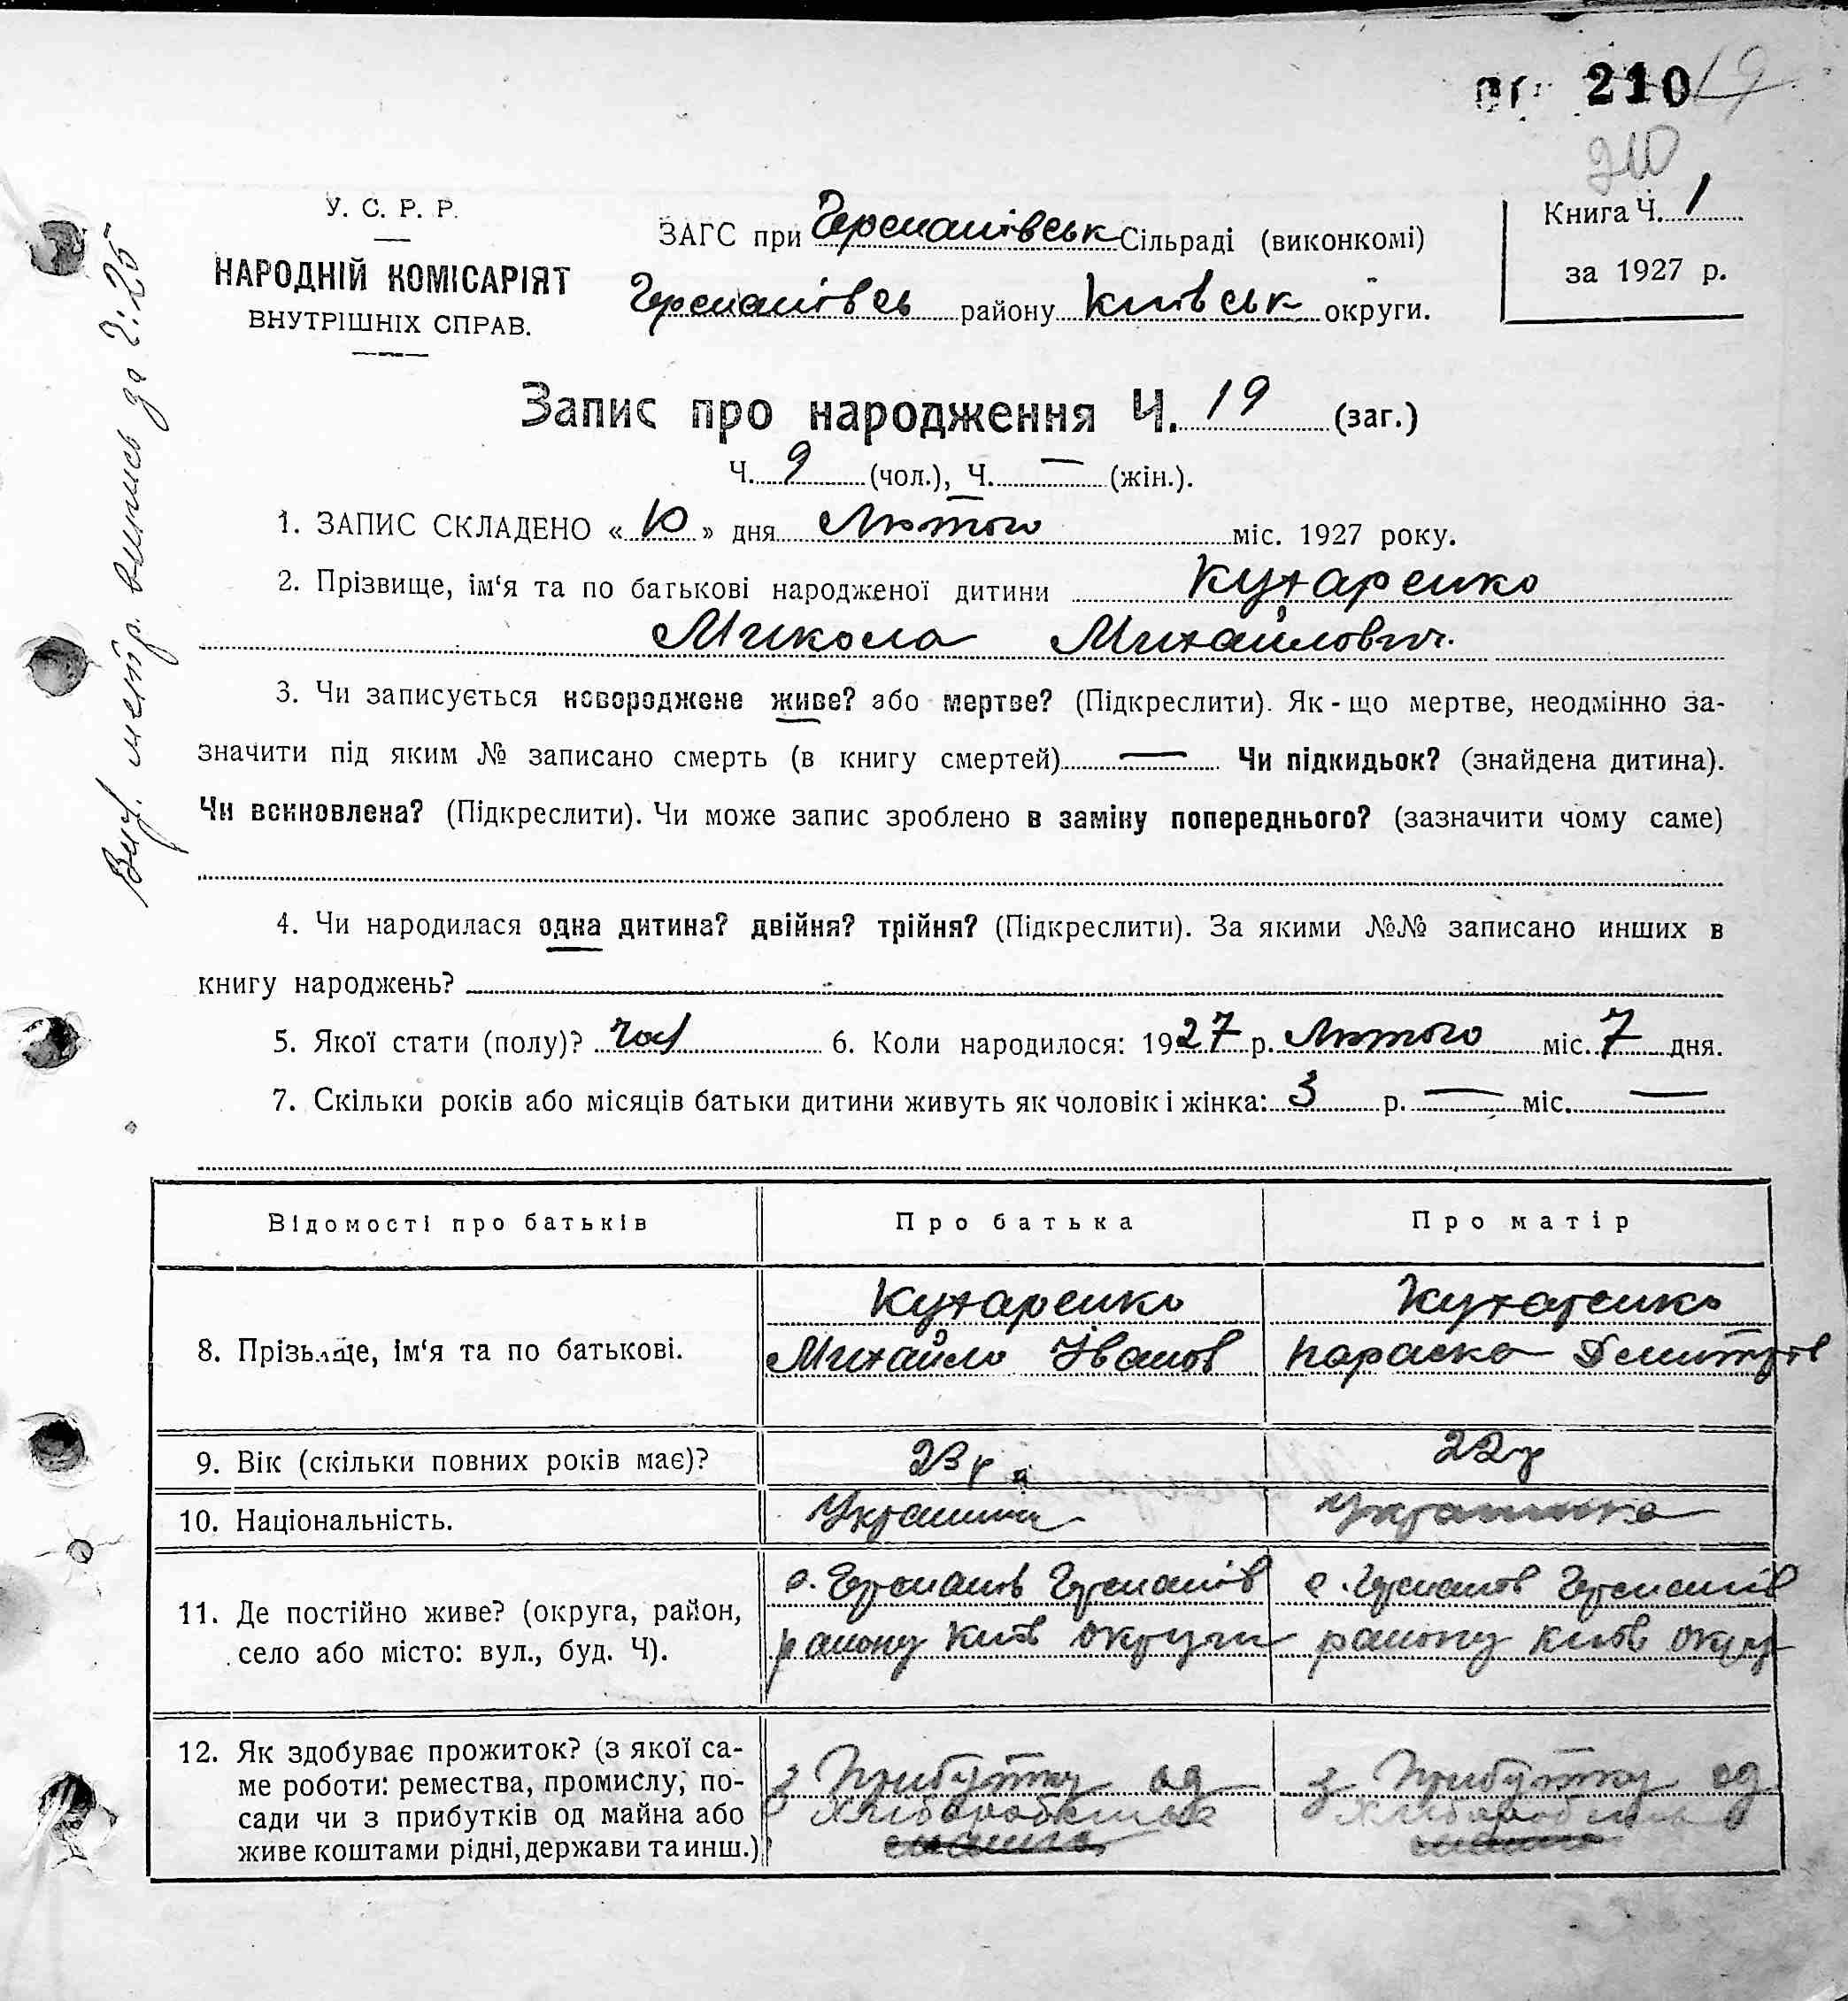 210 19
210
У. С. Р. Р.
НАРОДНІЙ КОМІСАРІЯТ
ВНУТРІШНІХ СПРАВ.
ЗАГС при Германівськ Сільраді (виконкомі)
Германівсь району Київськ округи.
Книга Ч. 1
за 1927 р.
Запис про народження Ч. 19 (заг.)
Ч. 9 (чол.), Ч. — (жін.).
1. ЗАПИС СКЛАДЕНО «10» дня Лютого міс. 1927 року.
2. Прізвище, ім‘я та по батькові народженої дитини Кухаренко
Микола Михайлович.
3. Чи записується новороджене живе? або мертве? (Підкреслити). Як-що мертве, неодмінно за-
значити під яким № записано смерть (в книгу смертей) — Чи підкидьок? (знайдена дитина).
Чи вскновлена? (Підкреслити). Чи може запис зроблено в заміну попереднього? (зазначити чому саме)
4. Чи народилася одна дитина? двійня? трійня? (Підкреслити). За якими №№ записано инших в
книгу народжень?
5. Якої стати (полу)? чол 6. Коли народилося: 1927 р. Лютого міс. 7 дня.
7. Скільки років або місяців батьки дитини живуть як чоловік і жінка: 3 р. — міс. —
Відомості про батьків Про батька Про матір
8. Прізвище, ім‘я та по батькові.
Кухаренко
Михайло Іванов
Кухаренко
Параска Демитров
9. Вік (скільки повних років має)? 23 р 22 р
10. Національність. Українин Українка
11. Де постійно живе? (округа, район,
село або місто: вул., буд. Ч).
с. Германів Германів
району Київ округи
с. Германов Германів
району Київ округ
12. Як здобуває прожиток? (з якої са-
ме роботи: ремества, промислу, по-
сади чи з прибутків од майна або
живе коштами рідні, держави та инш.)
з Прибутку од
Хліборобства
з Прибутку од
Хліборобства
метр. выпись за 2:25